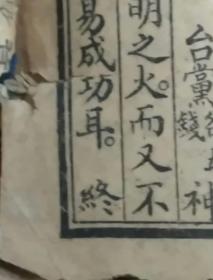 台黨
神
明之火。而又不
易成功耳。終